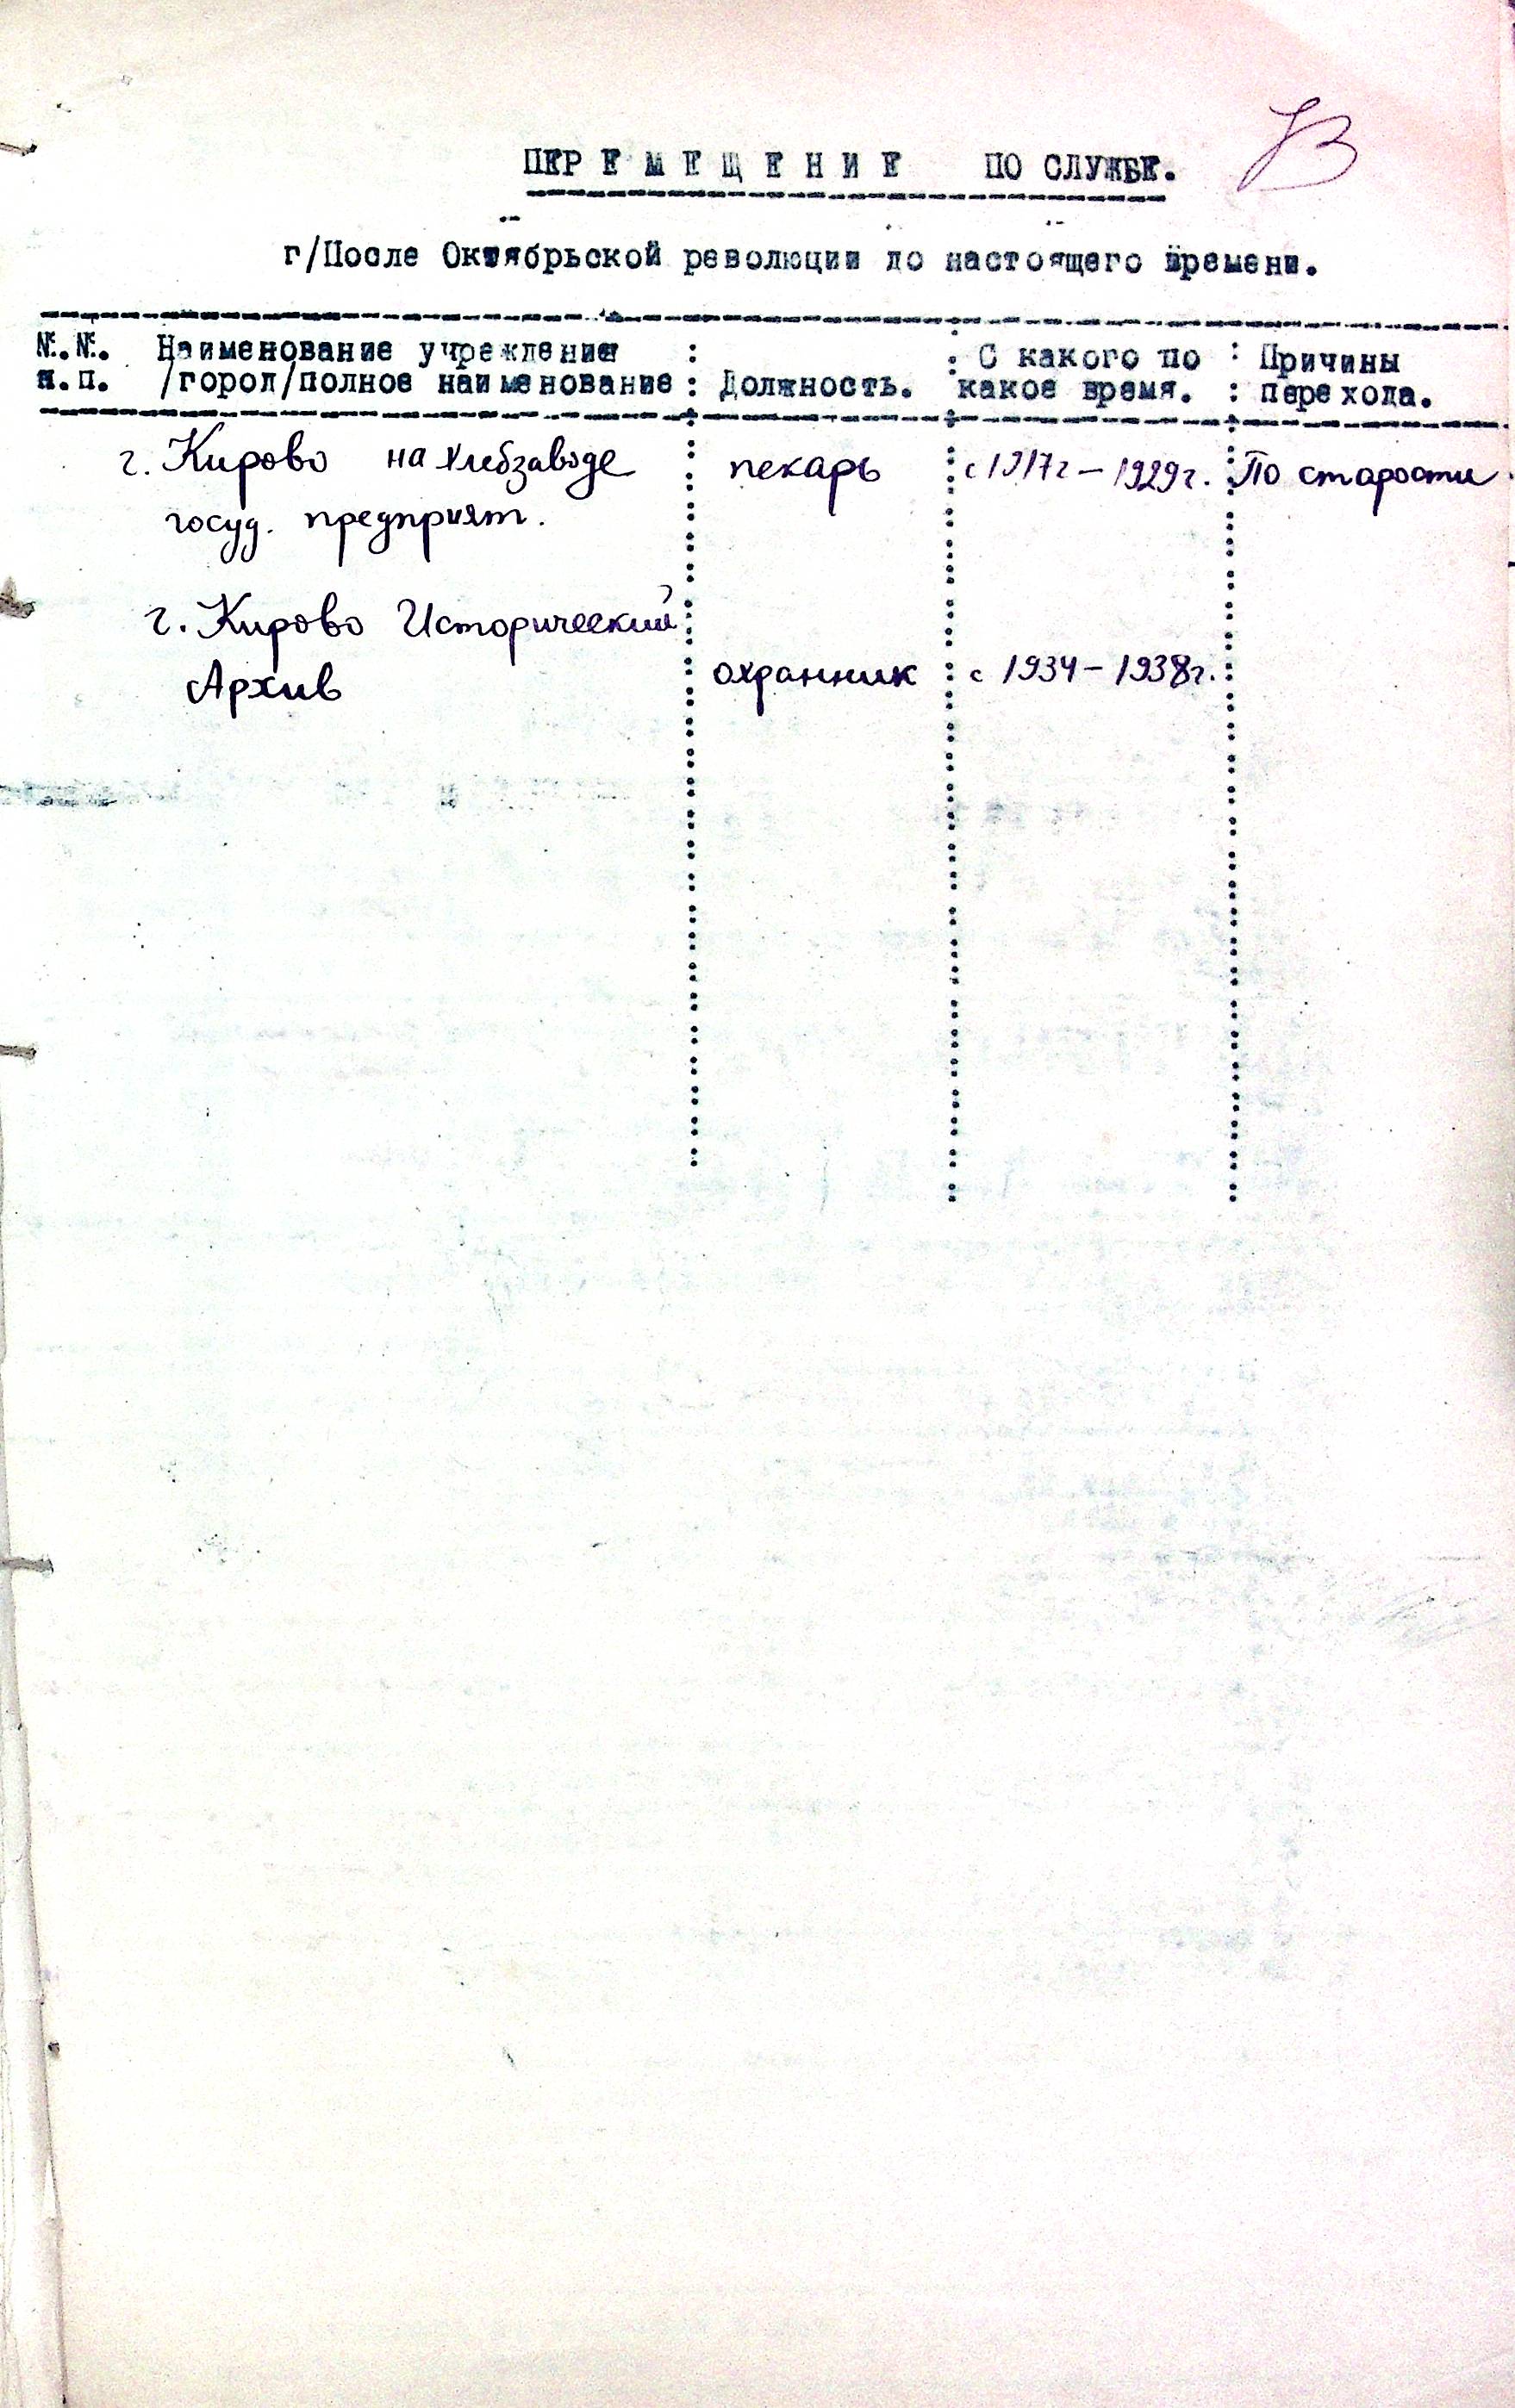 ПЕРЕМЕЩЕНИЕ ПО СЛУЖБЕ.
г/После Октябрьской революции до настоящего времени.
№.№. Наименование учреждения : : С какого по : Причины
п.п. /город/полное наименование : Должность. какое время. : перехода.
г. Кирово на хлебзаводе пекарь с 1917г – 1929г. По старости
госуд. предприят.
г. Кирово Исторический
Архив охранник с 1934 – 1938г.